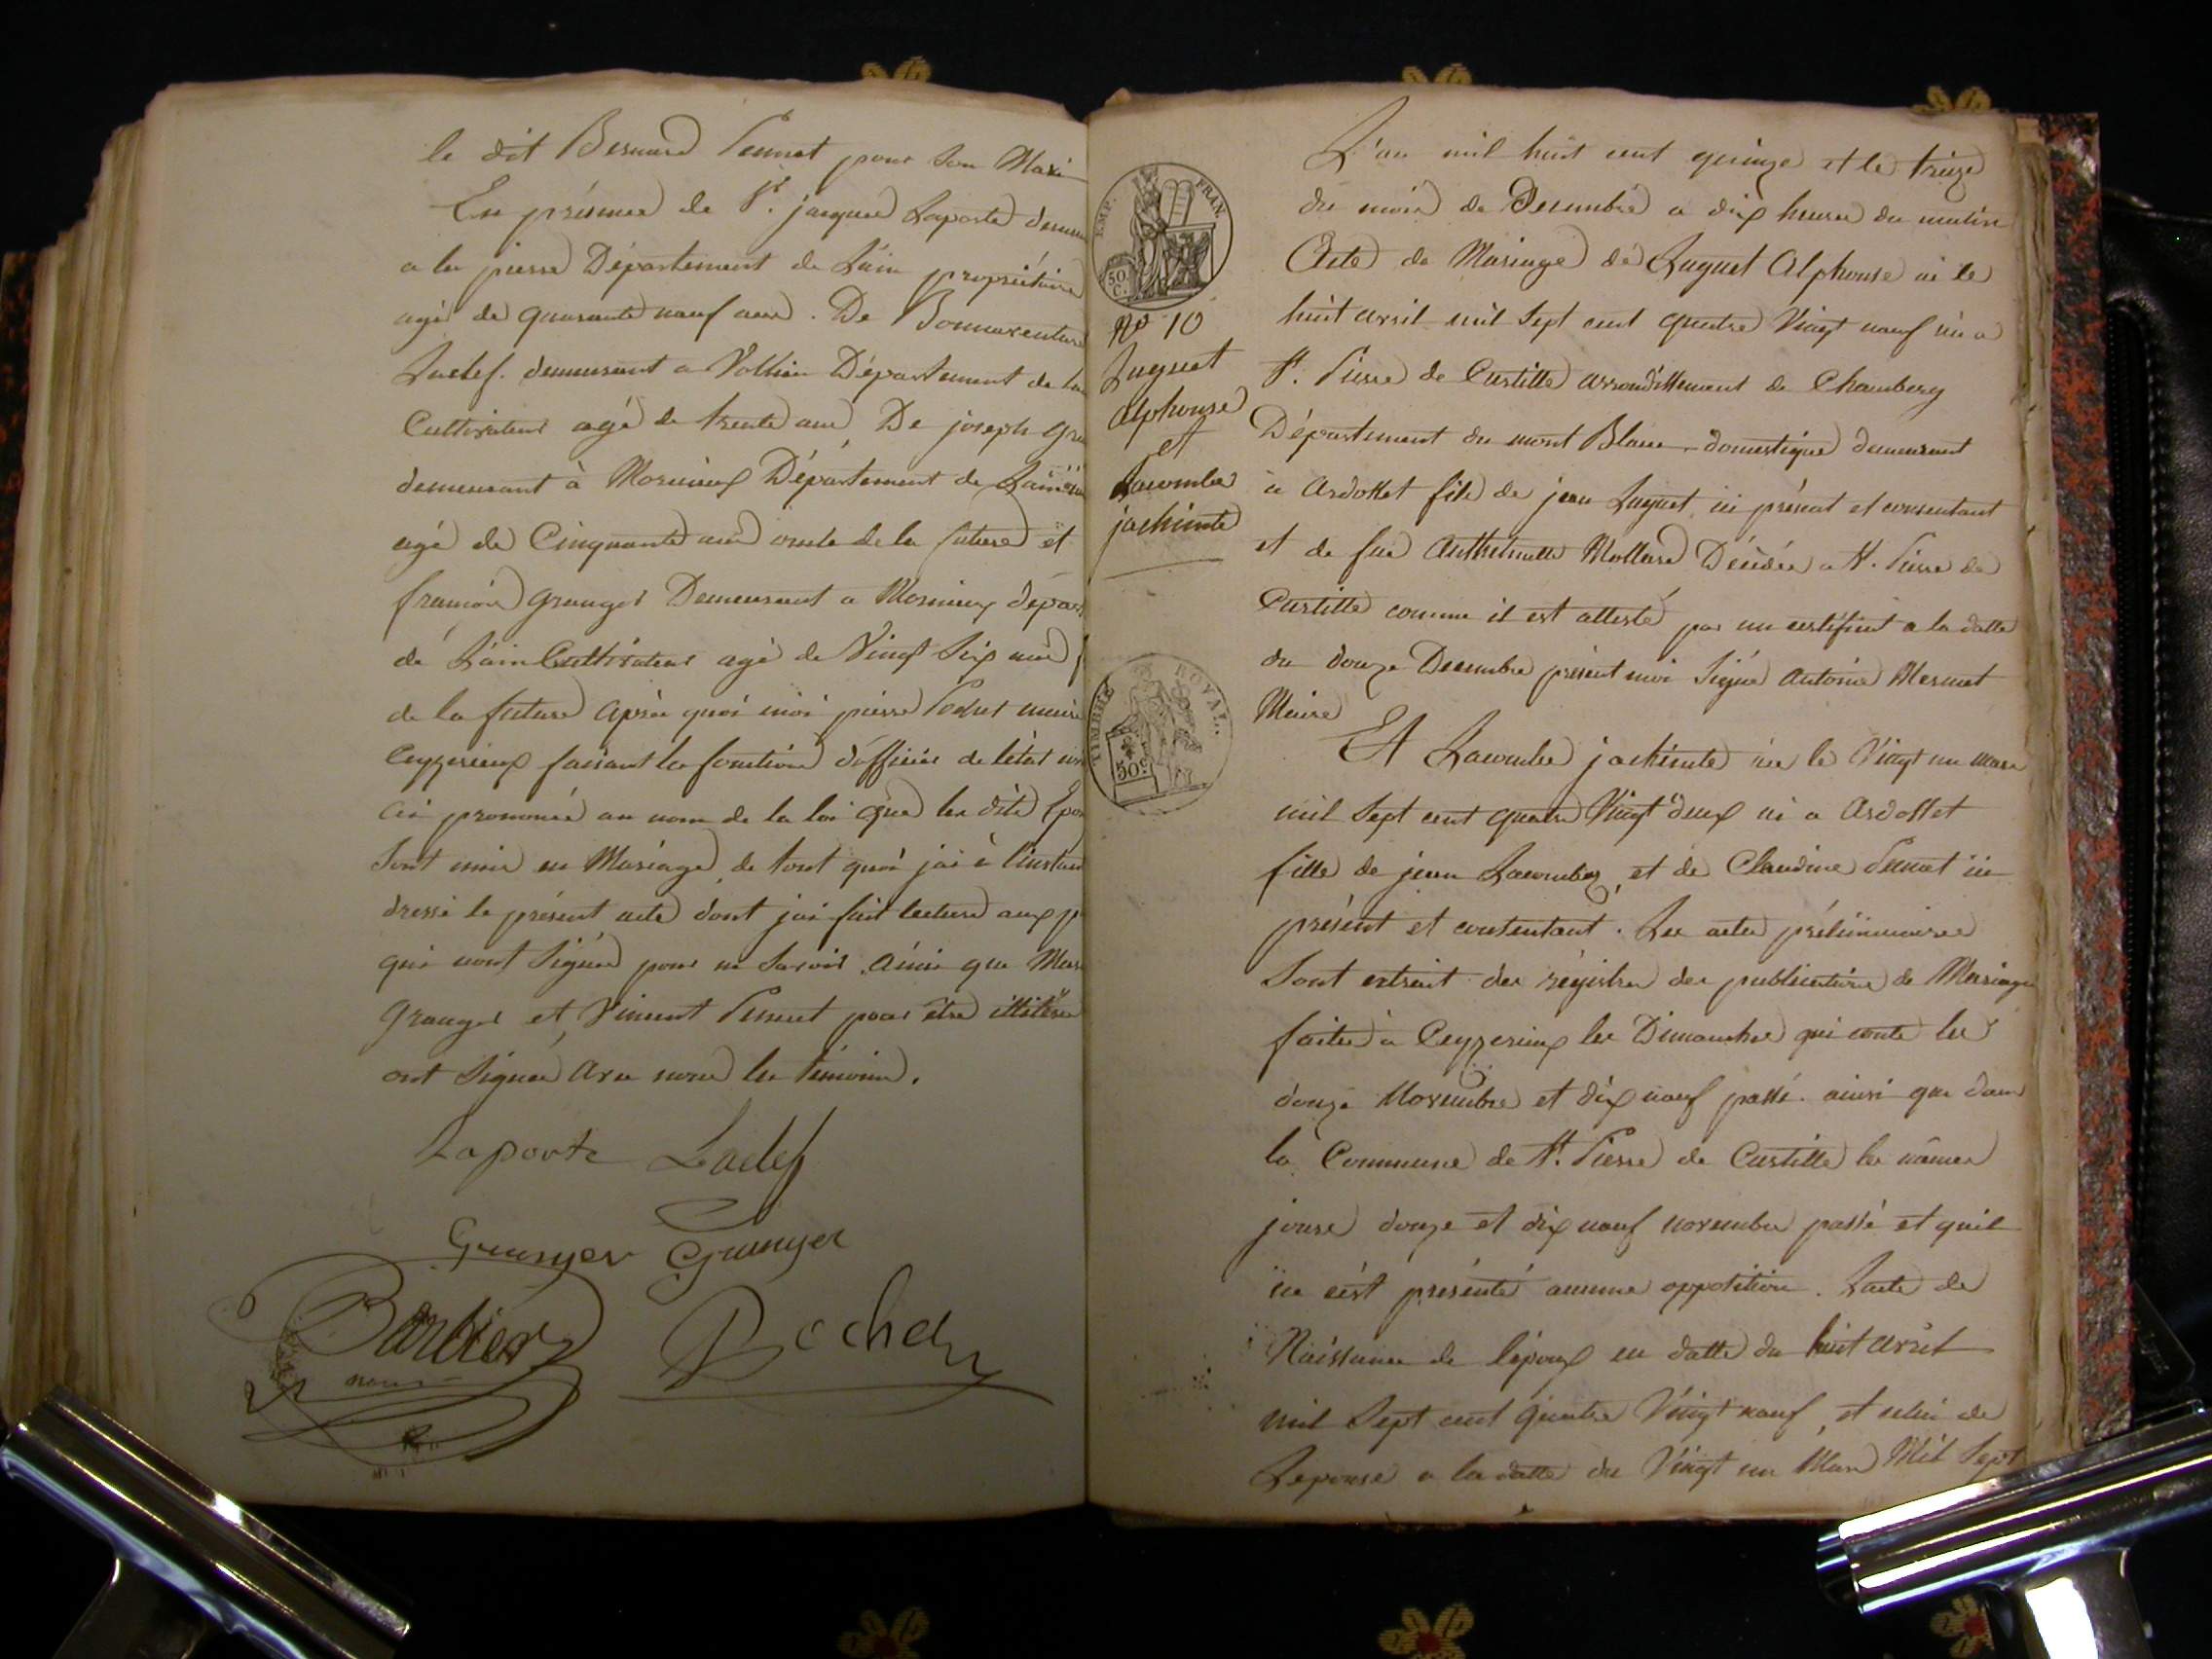 le dit Bernard Pennet pour son Mari
En présence de Sr. jacques Laporte demeu
a la pierre Département de Lain propriétaire
agé de quarante neuf ans. De Bonnaventure
Ladef. demeurant a Département de la
Cultivateur agé de trente ans, De joseph gra
demeurant à Département de Lain
agé de Cinquante ans oncle de la future et
francois granger Demeurant a dépar
de Lain Cultivateur agé de Vingt Six ans
de la future après quoi moi pierre Pochet maire
Ceyzerieux faisant les fonctions d'officier de létat
ai prononcé au nom de la loi que les dits Epou
Sont unis en Mariage, de tout quoi jai à linstan
dressé le présent acte dont jai fait lecture aux p
qui nont Signés pour ne Savoir. ainsi que
granger et Vincent Pennet pour être illitéré
ont Signés avec nous les témoins.
Laporte Ladef
Granger Granger
Barbier Pochet
EMP. FRAN.
50 C.
No 10
Juguet
alphonse
et
Lacombe
jachinte
TIMBRE ROYAL.
50c
L'an mil huit cent quinze et le treize
du mois de Decembre a dix heures du matin
Acte de Mariage de Juguet Alphonse né le
huit avril mil Sept cent quatre Vingt neuf né a
St. Pierre de Curtille arrondissement de Chambery
Département du mont Blanc domestique demeurant
à Ardosset fils de jean Juguet, ici présent et consentant
et de fue Anthelmette Mollard Décédée a St. Pierre de
Curtille comme il est attesté par un certificat a la datte
du douze Decembre présent moi Signé Antoine Mermet
Maire
Et Lacombe jachinte née le Vingt un mars
mil Sept cent quatre Vingt deux né a Ardosset
fille de jean Lacombe, et de Claudine Pennet ici
présent et consentant. Les actes préliminaires
Sont extrait des régistres des publications de Mariage
faites à Ceyzerieux les Dimanches qui conte les
douze Novembre et dix neuf passé. ainsi que dans
la Commune de St. Pierre de Curtille les mêmes
jours douze et dix neuf novembre passé et quil
ne cest présenté aucune opposition. Lacte de
Naissance de lépoux en datte du huit avril
mil Sept cent quatre Vingt neuf, et celui de
Lepouse a la datte du Vingt un Mars Mil Sept